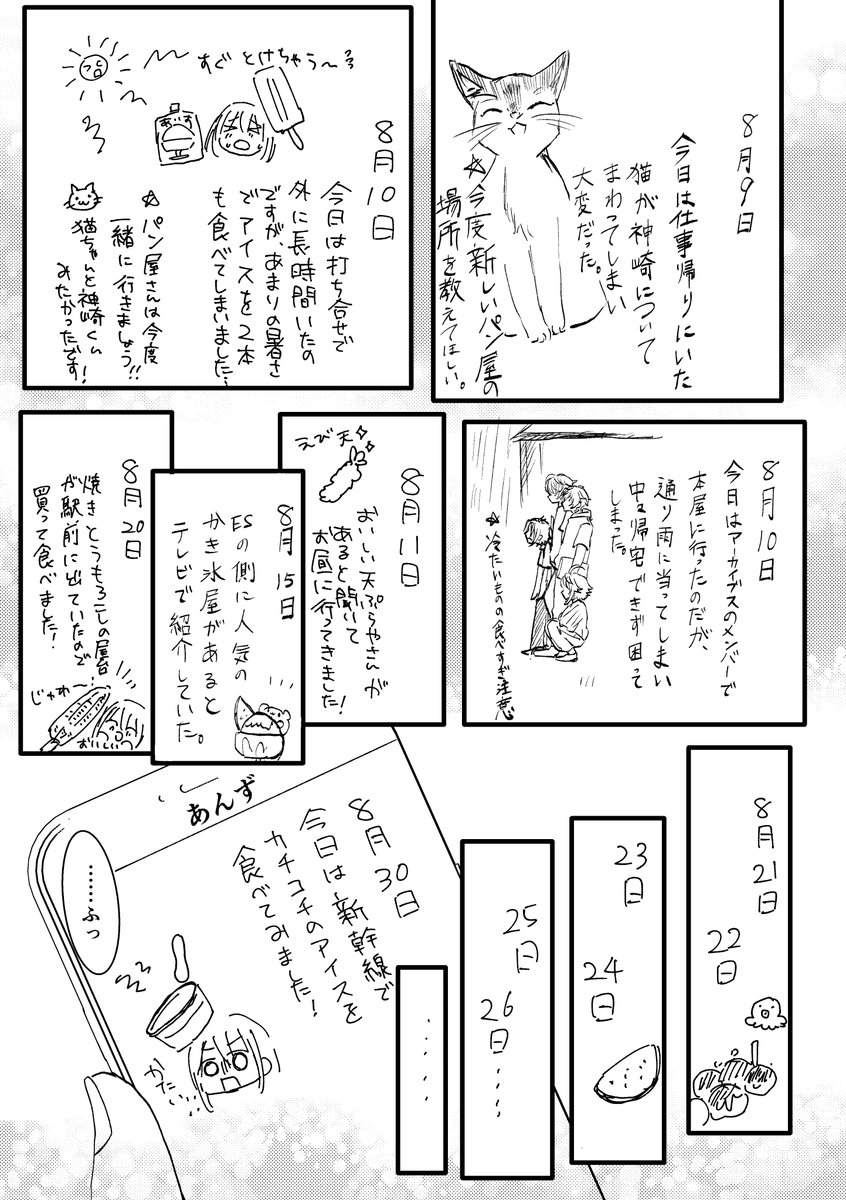 8月9日
今日は仕事帰りにいた
猫が神崎について
まわってしまい
大変だった。
☆今度新しいパン屋の
場所を教えてほしい。
すぐとけちゃう〜
あいす
8月10日
今日は打ち合せで
外に長時間いたの
ですが、あまりの暑さ
でアイスを2本
も食べてしまいました…
☆パン屋さんは今度
一緒に行きましょう!!
猫ちゃんと神崎くん
みたかったです!
8月10日
今日はアーカイブスのメンバーで
本屋に行ったのだが、
通り雨に当ってしまい
中々帰宅できず困って
しまった。
☆冷たいものの食べすぎ注意
8月11日
おいしい天ぷらやさんが
あると聞いて
お昼に行ってきました!
えび天
8月15日
ESの側に人気の
かき氷屋があると
テレビで紹介していた。
8月20日
焼きとうもろこしの屋台
が駅前に出ていたので
買って食べました!
じゅわ〜!
おいしい
8月21日
22日
23日
24日
25日
26日・・・・
・・・・
あんず
8月30日
今日は新幹線で
カチコチのアイスを
食べてみました!
かたい…
………ふっ